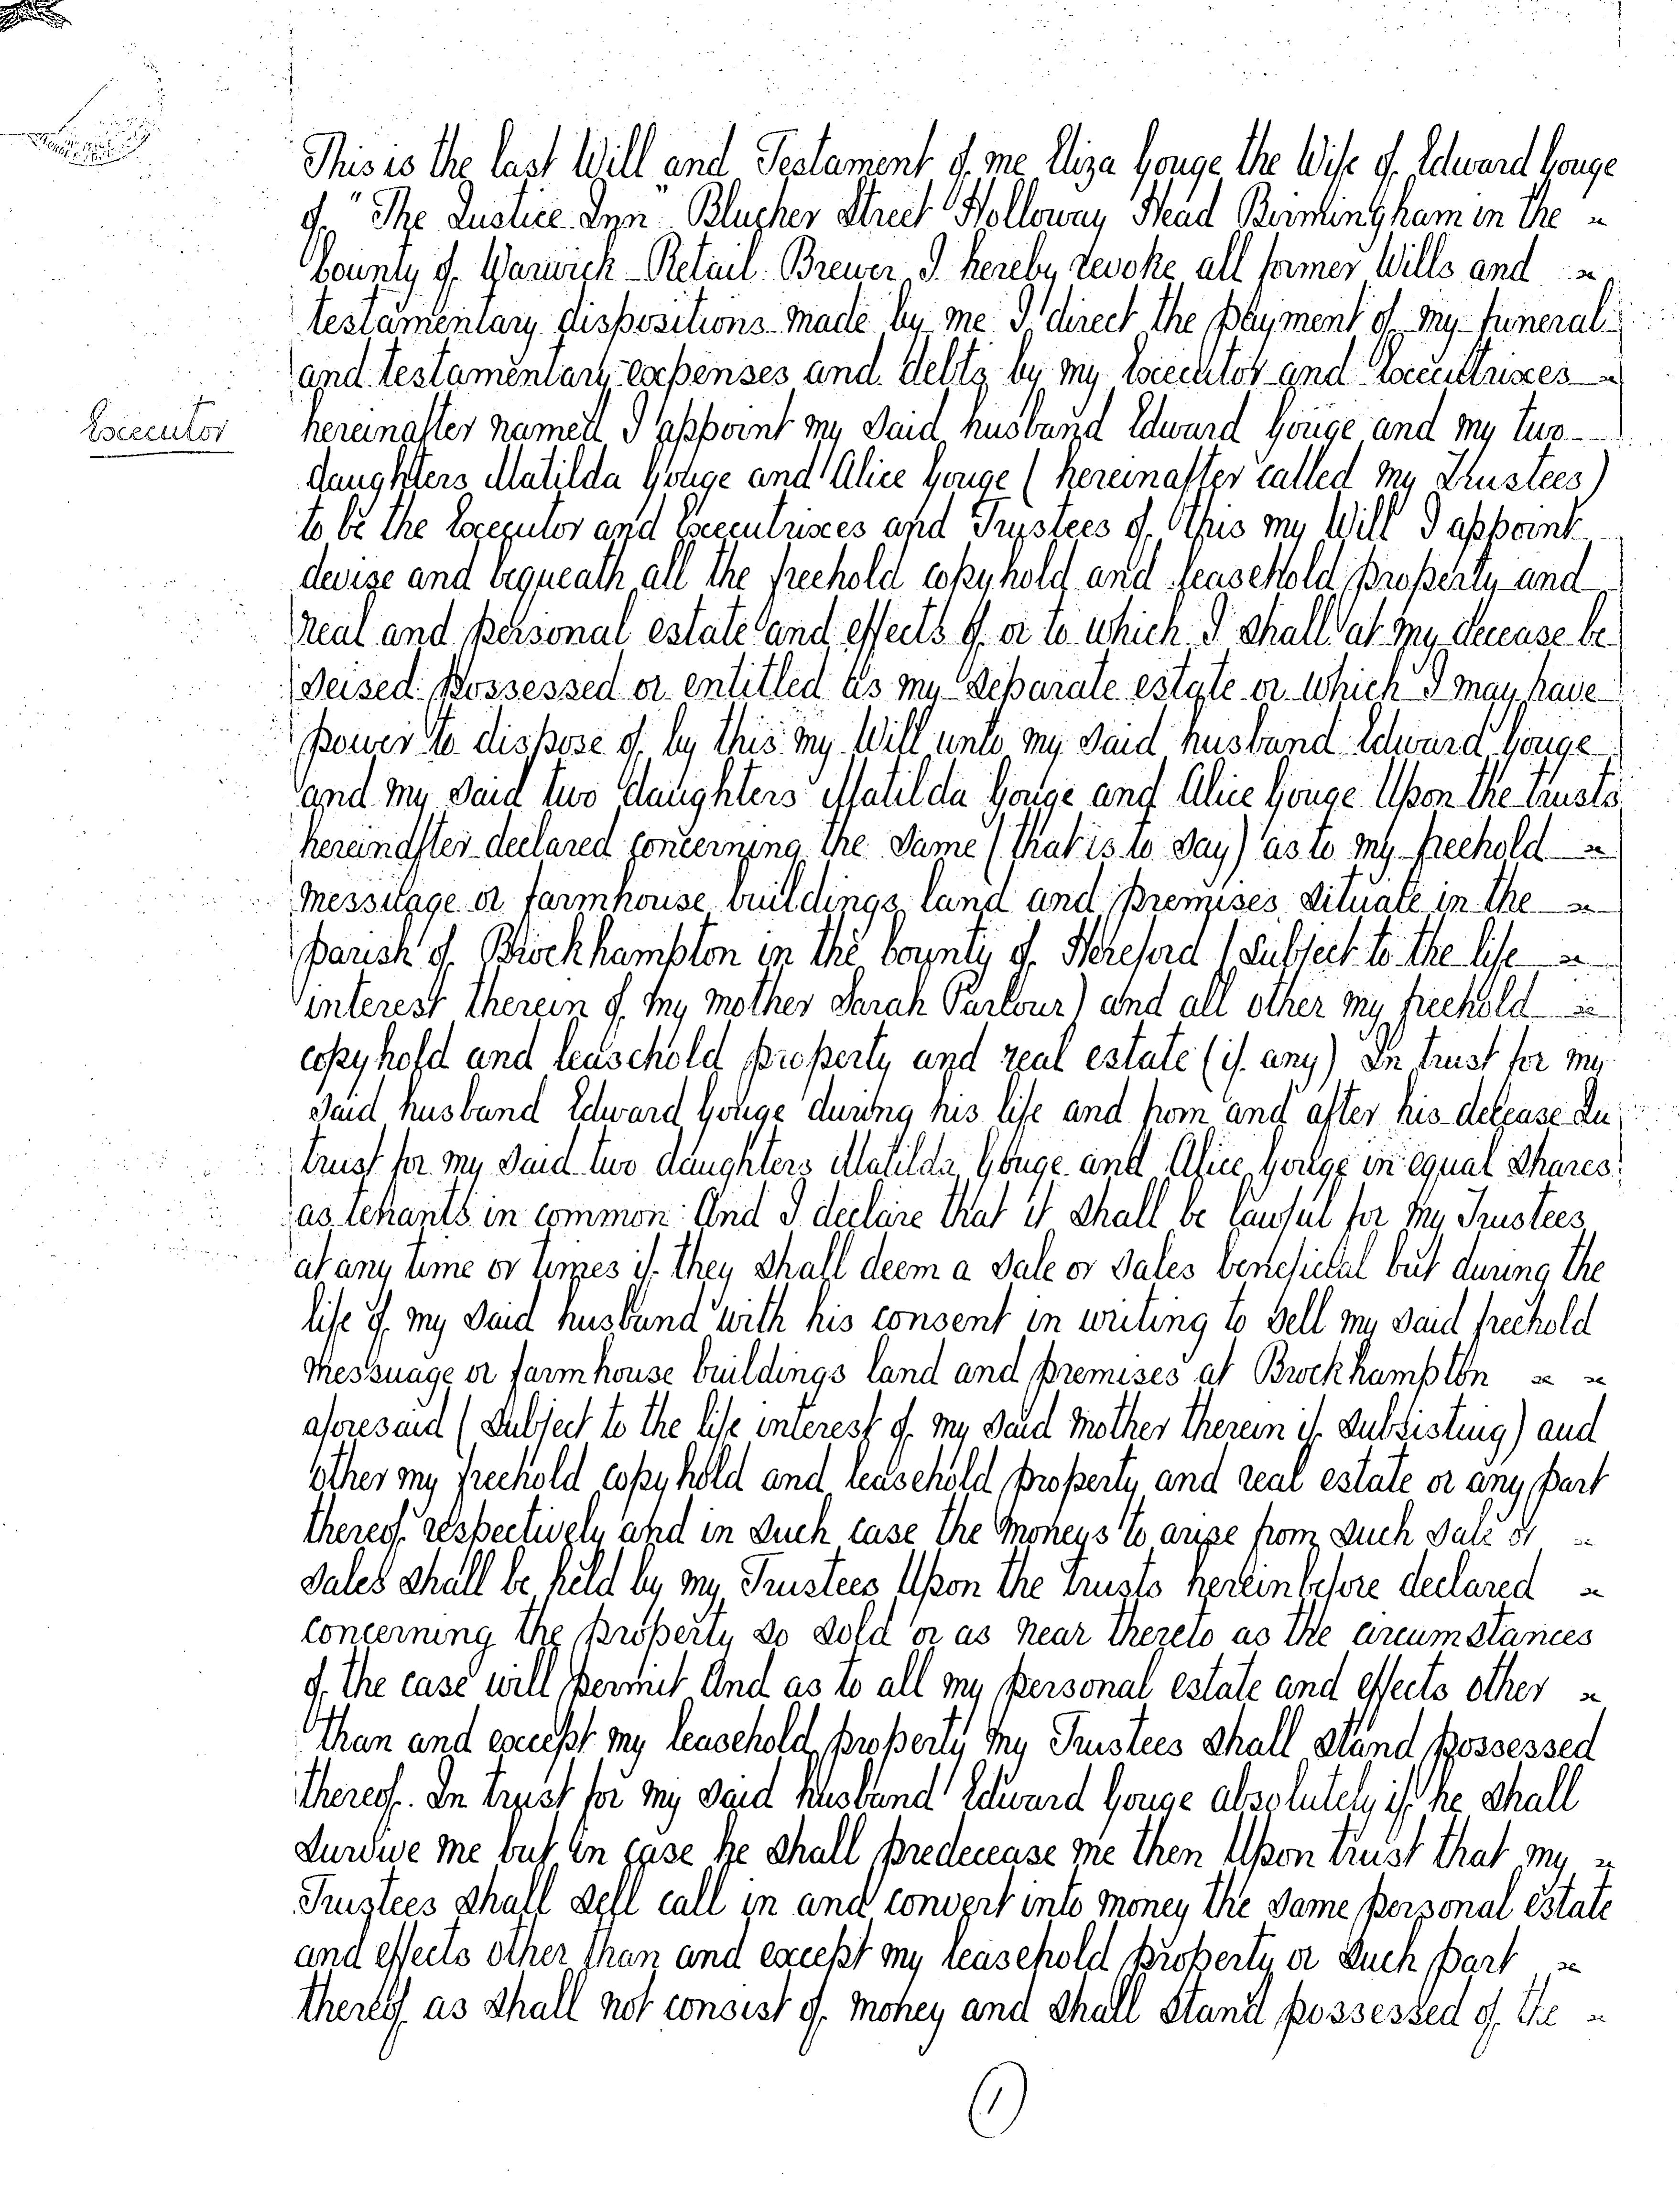 This is the last Will and Testament of me Eliza Gouge the Wife of Edward Gouge
of "The Justice Inn" Blucher Street Holloway Head Birmingham in the
County of Warwick Retail Brewer I hereby revoke all former Wills and
testamentary dispositions made by me I direct the payment of my funeral
and testamentary expenses and debts by my Executor and Executrixes
Executor
hereinafter named I appoint my said husband Edward Gouge and my two
daughters Matilda Gouge and Alice Gouge (hereinafter called my Trustees)
to be the Executor and Executrixes and Trustees of this my Will I appoint
devise and bequeath all the freehold copyhold and leasehold property and
real and personal estate and effects of or to which I shall at my decease be
seised possessed or entitled as my separate estate or which I may have
power to dispose of by this my Will unto my said husband Edward Gouge
and my said two daughters Matilda Gouge and Alice Gouge Upon the trusts
hereinafter declared concerning the same (that is to say) as to my freehold
messuage or farmhouse buildings land and premises situate in the
parish of Brockhampton in the County of Hereford (subject to the life
interest therein of my mother Sarah Parlour) and all other my freehold
copyhold and leasehold property and real estate (if any) In trust for my
said husband Edward Gouge during his life and from and after his decease In
trust for my said two daughters Matilda Gouge and Alice Gouge in equal shares
as tenants in common And I declare that it shall be lawful for my Trustees
at any time or times if they shall deem a sale or sales beneficial but during the
life of my said husband with his consent in writing to sell my said freehold
messuage or farmhouse buildings land and premises at Brockhampton
aforesaid (subject to the life interest of my said mother therein if subsisting) and
other my freehold copyhold and leasehold property and real estate or any part
thereof respectively and in such case the moneys to arise from such sale or
sales shall be held by my Trustees Upon the trusts hereinbefore declared
concerning the property so sold or as near thereto as the circumstances
of the case will permit And as to all my personal estate and effects other
than and except my leasehold property my Trustees shall stand possessed
thereof In trust for my said husband Edward Gouge absolutely if he shall
survive me but in case he shall predecease me then Upon trust that my
Trustees shall sell call in and convert into money the same personal estate
and effects other than and except my leasehold property or such part
thereof as shall not consist of money and shall stand possessed of the
1